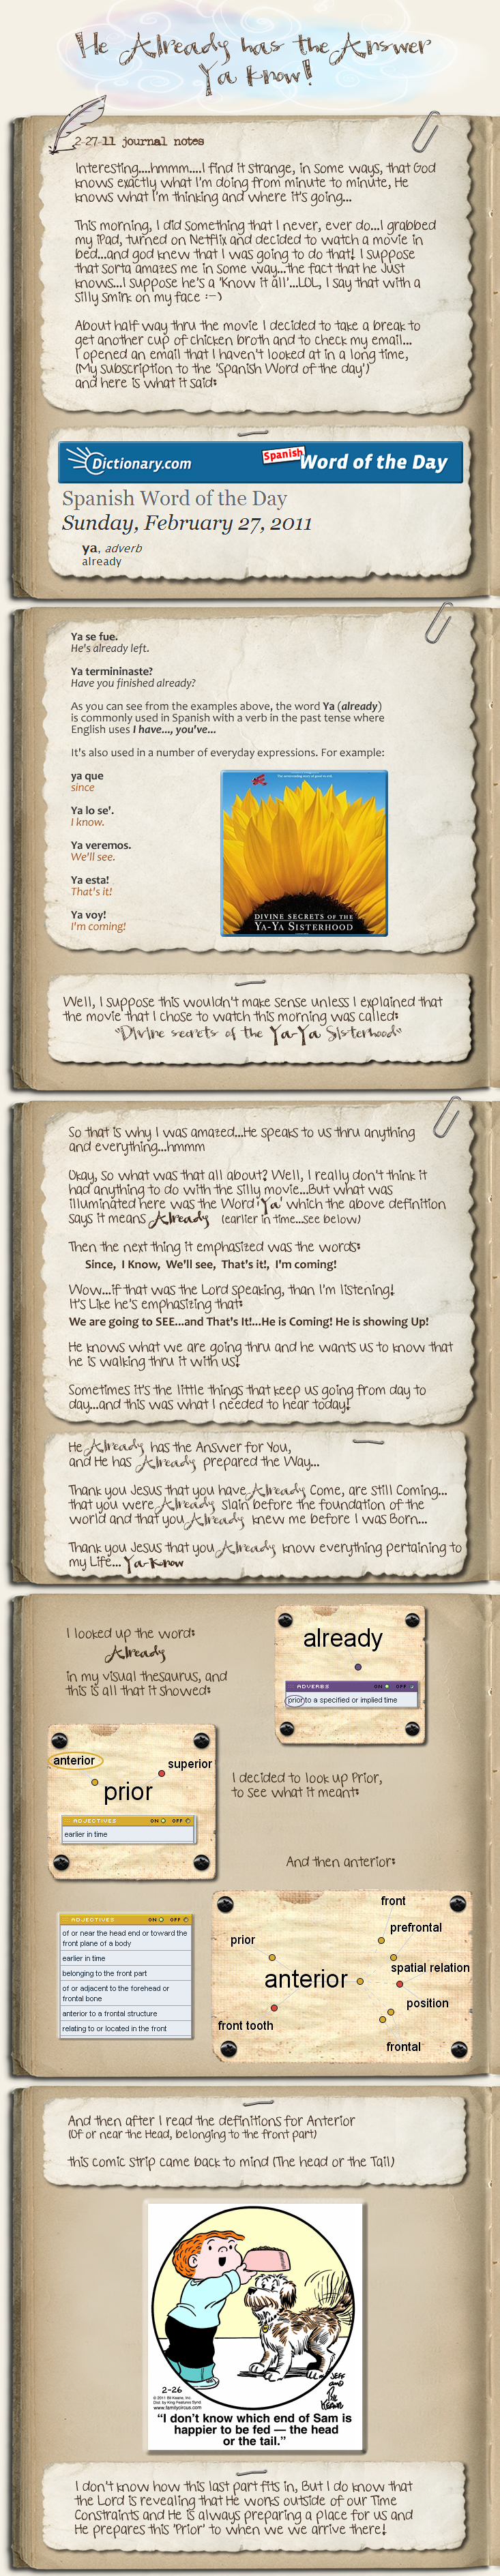 He Already has the Answer
Ya Know!
2-27-11 journal notes
Interesting....hmmm....I find it strange, in some ways, that God
knows exactly what I'm doing from minute to minute, He
knows what I'm thinking and where it's going...
This morning, I did something that I never, ever do...I grabbed
my iPad, turned on Netflix and decided to watch a movie in
bed...and god knew that I was going to do that! I suppose
that sorta amazes me in some way...the fact that he Just
knows...I suppose he's a 'Know it all'...LOL, I say that with a
silly smirk on my face :-)
About half way thru the movie I decided to take a break to
get another cup of chicken broth and to check my email...
I opened an email that I haven't looked at in a long time,
(My subscription to the 'Spanish Word of the day')
and here is what it said:
Dictionary.com Spanish Word of the Day
Spanish Word of the Day
Sunday, February 27, 2011
ya, adverb
already
Ya se fue.
He's already left.
Ya termininaste?
Have you finished already?
As you can see from the examples above, the word Ya (already)
is commonly used in Spanish with a verb in the past tense where
English uses I have..., you've...
It's also used in a number of everyday expressions. For example:
ya que
since
Ya lo se'.
I know.
Ya veremos.
We'll see.
Ya esta!
That's it!
Ya voy!
I'm coming!
DIVINE SECRETS OF THE
YA-YA SISTERHOOD
Well, I suppose this wouldn't make sense unless I explained that
the movie that I chose to watch this morning was called:
"Divine secrets of the Ya-Ya Sisterhood"
So that is why I was amazed...He speaks to us thru anything
and everything...hmmm
Okay, so what was that all about? Well, I really don't think it
had anything to do with the silly movie...But what was
illuminated here was the Word 'Ya' which the above definition
says it means Already (earlier in time...see below)
Then the next thing it emphasized was the words:
Since, I Know, We'll see, That's it!, I'm coming!
Wow...if that was the Lord speaking, than I'm listening!
It's Like he's emphasizing that:
We are going to SEE...and That's It!...He is Coming! He is showing Up!
He knows what we are going thru and he wants us to know that
he is walking thru it with us!
Sometimes it's the little things that keep us going from day to
day...and this was what I needed to hear today!
He Already has the Answer for You,
and He has Already prepared the Way...
Thank you Jesus that you have Already Come, are still Coming...
that you were Already slain before the foundation of the
world and that you Already knew me before I was Born...
Thank you Jesus that you Already know everything pertaining to
my Life... Ya-Know
I looked up the word:
Already
in my visual thesaurus, and
this is all that it showed:
already
ADVERBS ON OFF
prior to a specified or implied time
anterior
superior
prior
ADJECTIVES ON OFF
earlier in time
I decided to look up Prior,
to see what it meant:
And then anterior:
ADJECTIVES ON OFF
of or near the head end or toward the
front plane of a body
earlier in time
belonging to the front part
of or adjacent to the forehead or
frontal bone
anterior to a frontal structure
relating to or located in the front
front
prefrontal
prior
spatial relation
anterior
position
front tooth
frontal
And then after I read the definitions for Anterior
(Of or near the Head, belonging to the front part)
this comic strip came back to mind (The head or the Tail)
2-26
© 2011 Bil Keane, Inc.
Dist. by King Features Synd
www.familycircus.com
JEFF
and
BIL
KEANE
"I don't know which end of Sam is
happier to be fed — the head
or the tail."
I don't know how this last part fits in, But I do know that
the Lord is revealing that He works outside of our Time
Constraints and He is always preparing a place for us and
He prepares this 'Prior' to when we we arrive there!